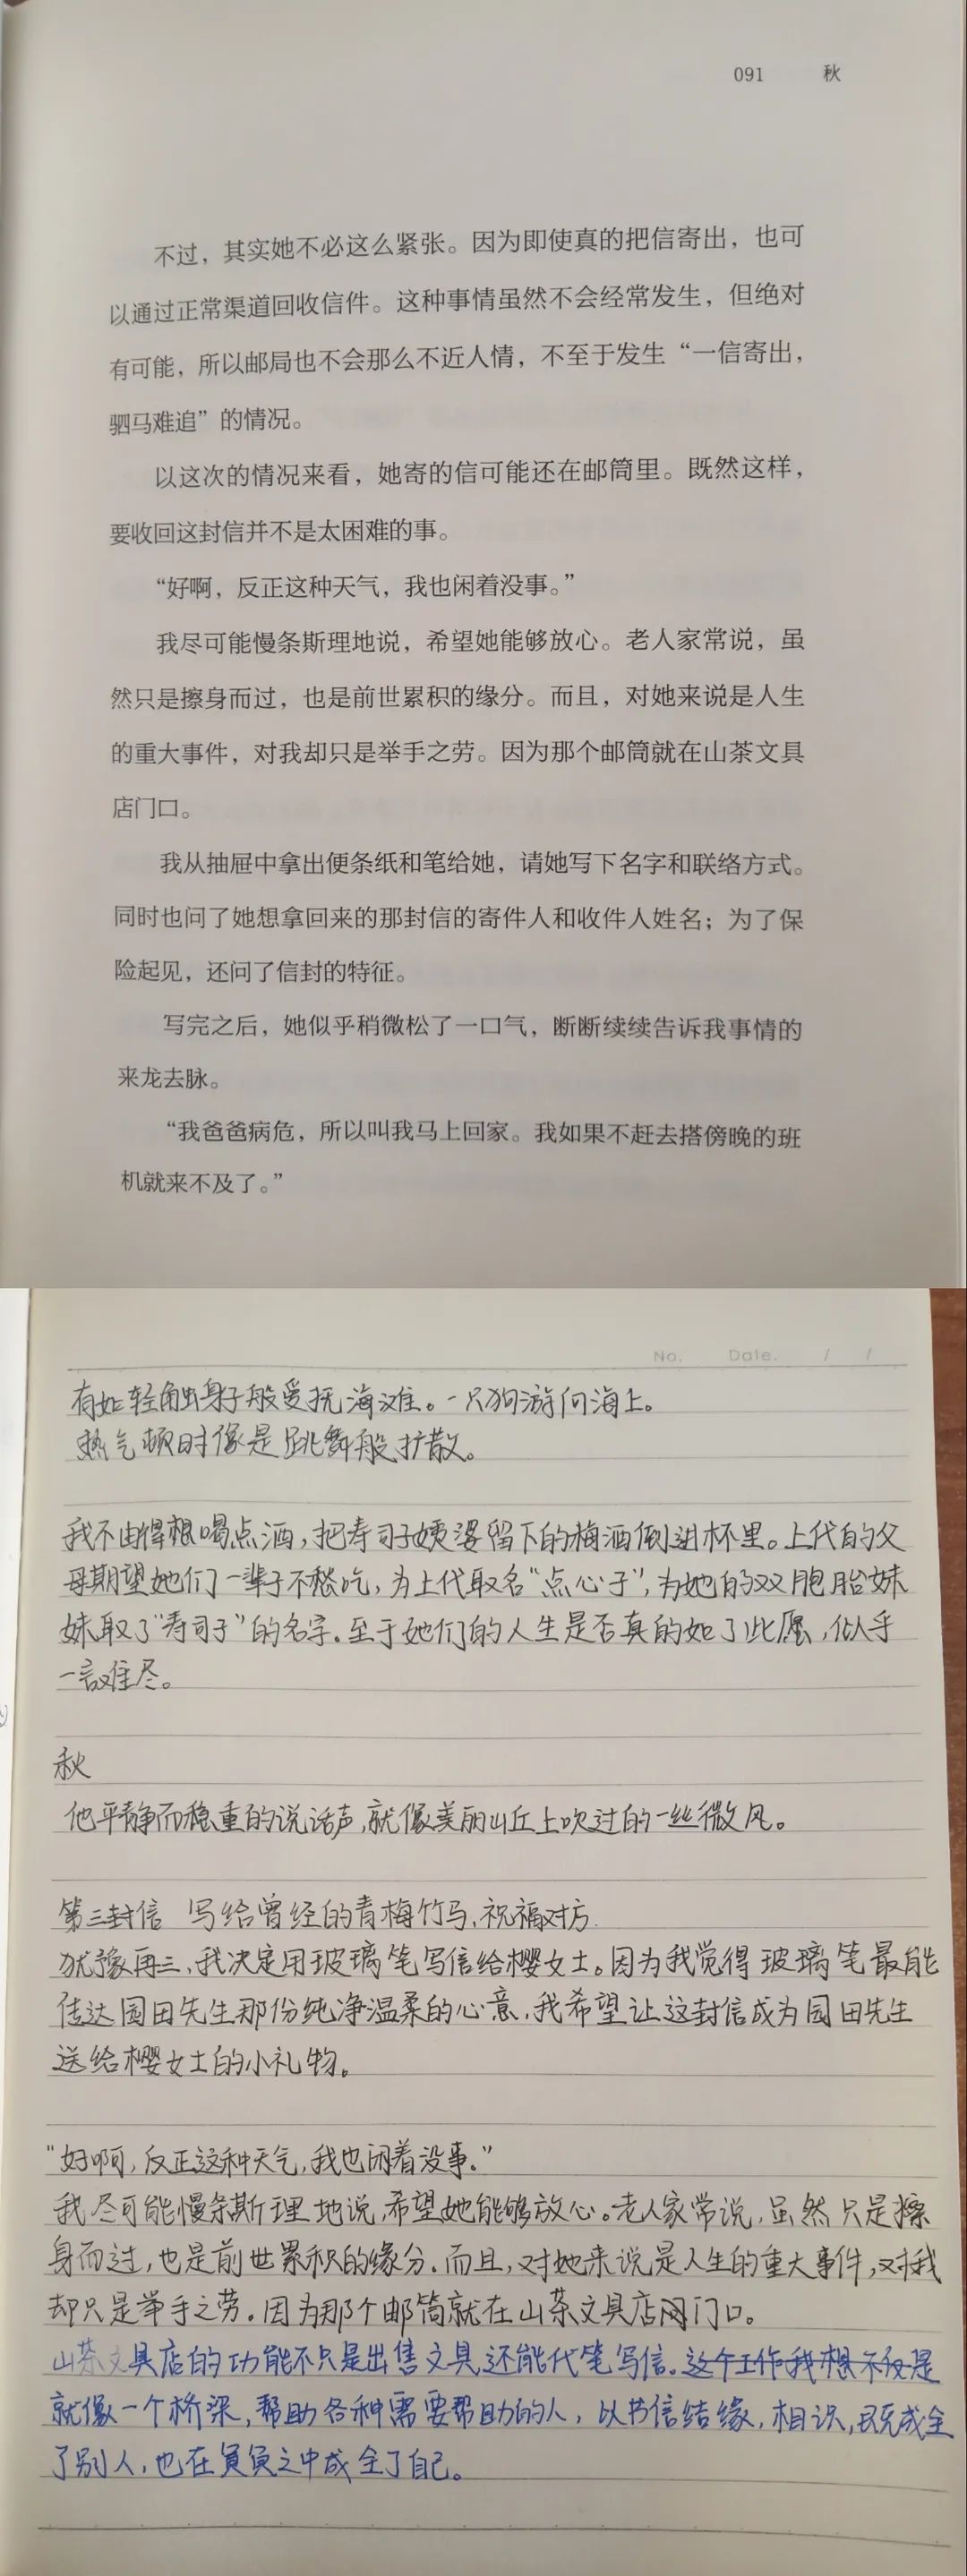 091 秋
不过，其实她不必这么紧张。因为即使真的把信寄出，也可
以通过正常渠道回收信件。这种事情虽然不会经常发生，但绝对
有可能，所以邮局也不会那么不近人情，不至于发生“一信寄出，
驷马难追”的情况。
以这次的情况来看，她寄的信可能还在邮筒里。既然这样，
要收回这封信并不是太困难的事。
“好啊，反正这种天气，我也闲着没事。”
我尽可能慢条斯理地说，希望她能够放心。老人家常说，虽
然只是擦身而过，也是前世累积的缘分。而且，对她来说是人生
的重大事件，对我却只是举手之劳。因为那个邮筒就在山茶文具
店门口。
我从抽屉中拿出便条纸和笔给她，请她写下名字和联络方式。
同时也问了她想拿回来的那封信的寄件人和收件人姓名；为了保
险起见，还问了信封的特征。
写完之后，她似乎稍微松了一口气，断断续续告诉我事情的
来龙去脉。
“我爸爸病危，所以叫我马上回家。我如果不赶去搭傍晚的班
机就来不及了。”
No. Date. / /
有如轻触身子般爱抚海滩。一只狗游向海上。
热气顿时像是跳舞般扩散。
我不由得想喝点酒，把寿司子姨婆留下的梅酒倒进杯里。上代的父
母期望她们一辈子不愁吃，为上代取名“点心子”，为她的双胞胎妹
妹取了“寿司子”的名字。至于她们的人生是否真的如了此愿，似乎
一言难尽。
秋
他平静而稳重的说话声，就像美丽山丘上吹过的一丝微风。
第三封信 写给曾经的青梅竹马，祝福对方.
犹豫再三，我决定用玻璃笔写信给樱女士。因为我觉得玻璃笔最能
传达园田先生那份纯净温柔的心意，我希望让这封信成为园田先生
送给樱女士的小礼物。
“好啊，反正这种天气，我也闲着没事。”
我尽可能慢条斯理地说，希望她能够放心。老人家常说，虽然只是擦
身而过，也是前世累积的缘分。而且，对她来说是人生的重大事件，对我
却只是举手之劳。因为那个邮筒就在山茶文具店门口。
山茶文具店的功能不只是出售文具，还能代笔写信。这个工作我想不仅是
就像一个桥梁，帮助各种需要帮助的人，以书信结缘，相识，既成全
了别人，也在冥冥之中成全了自己。